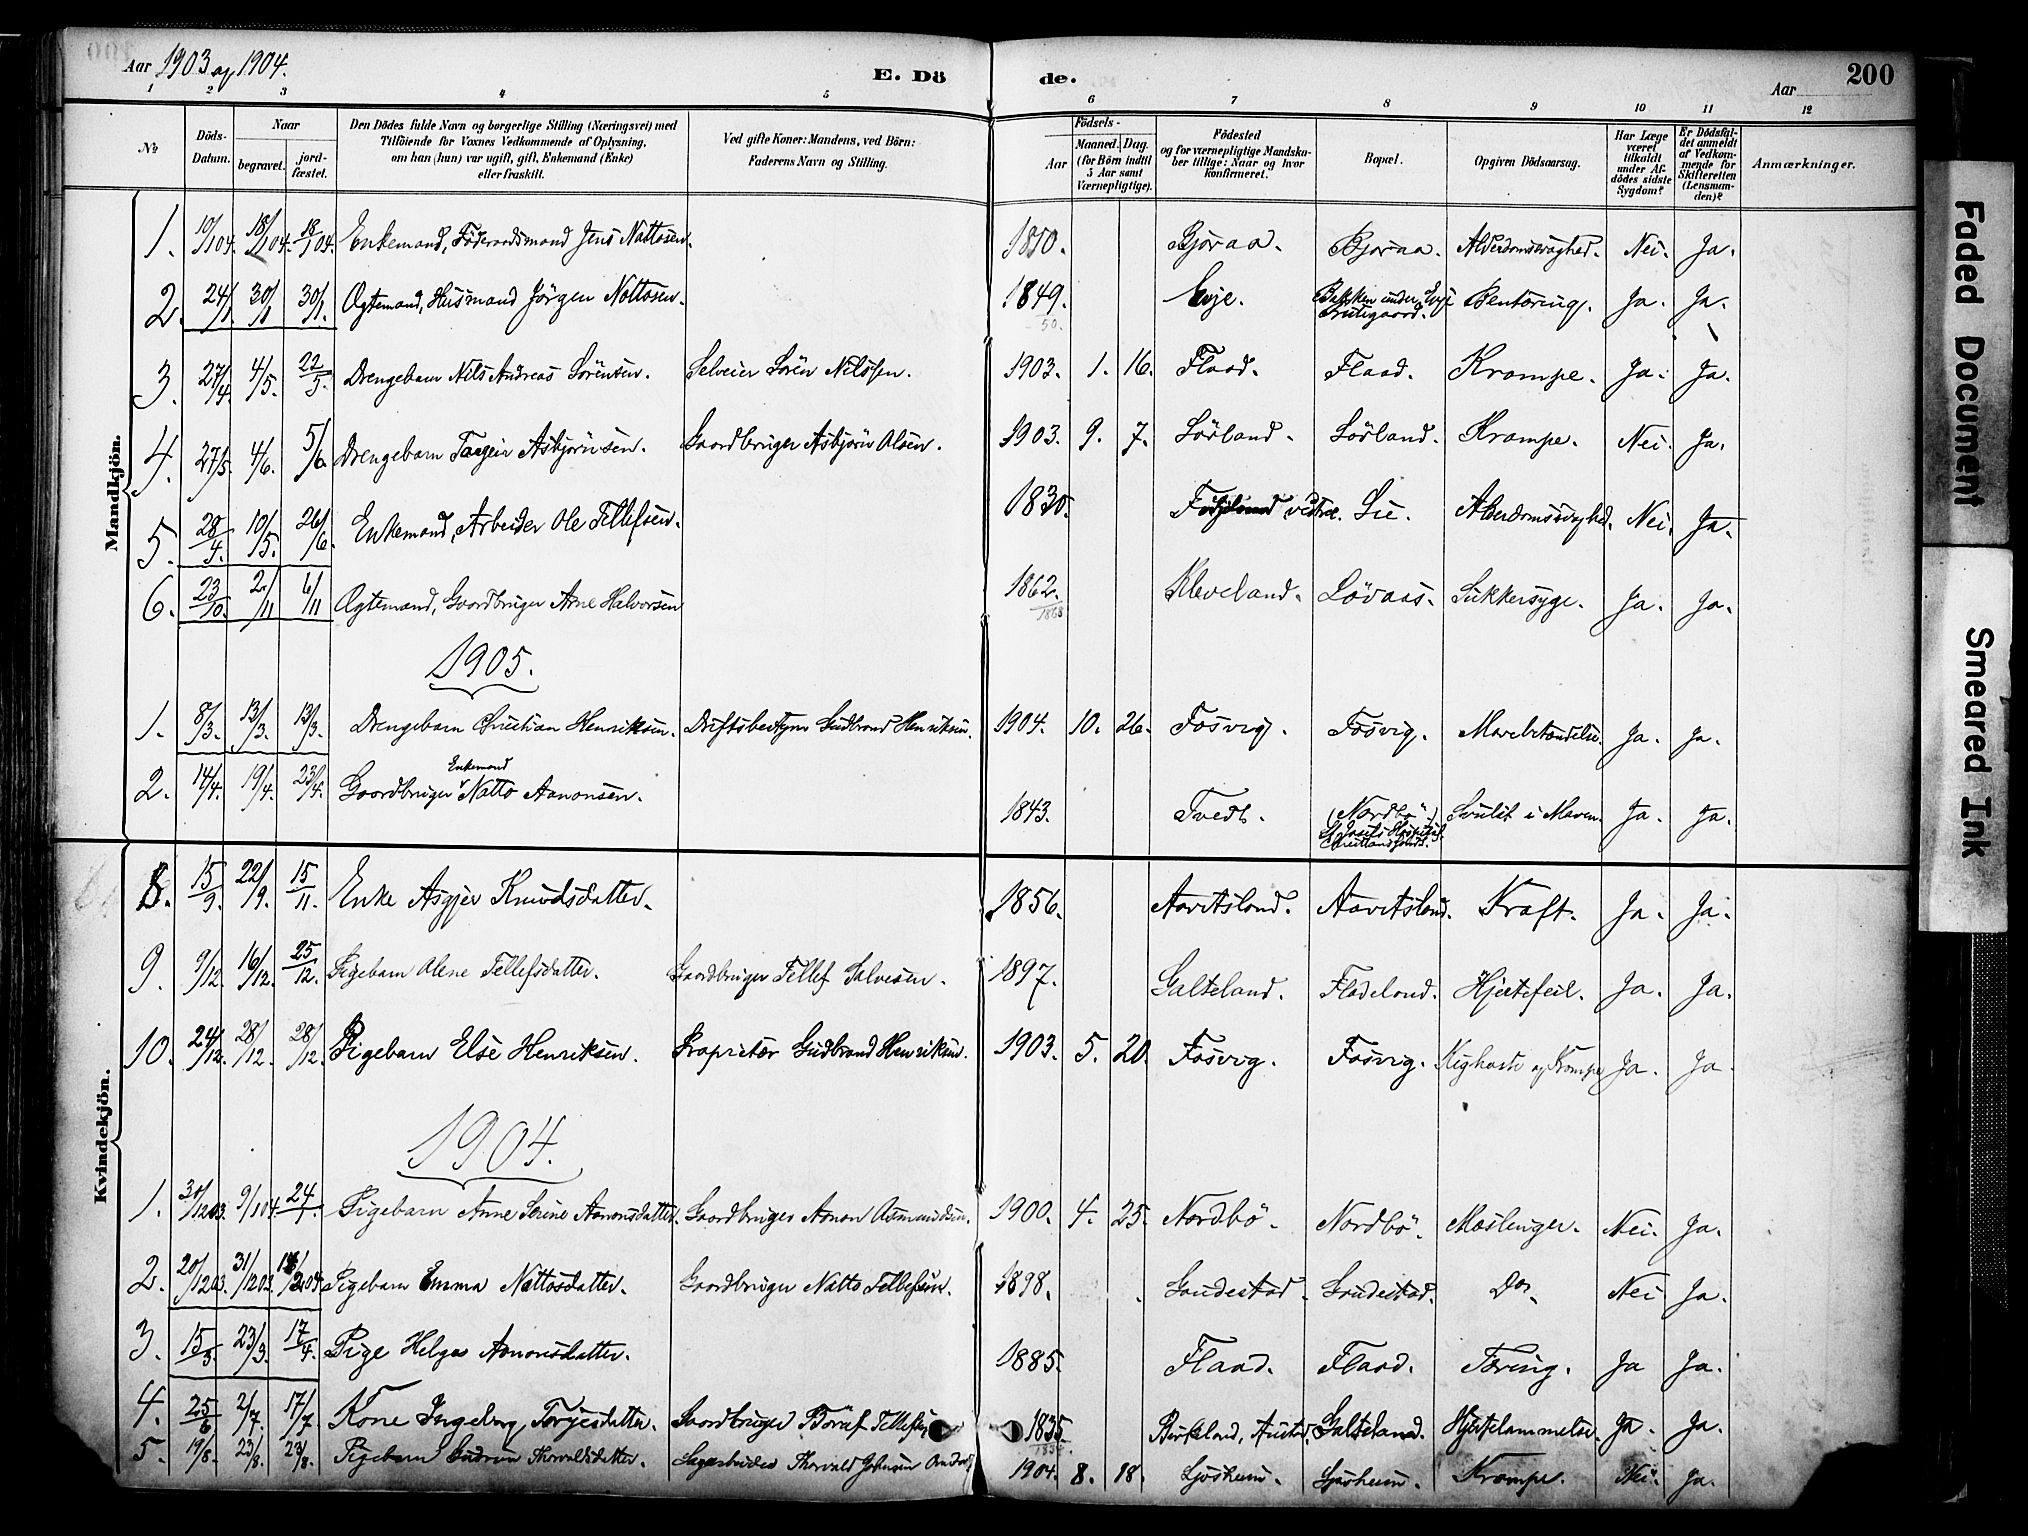 Aar 1903 og 1904.
E. Dö de.
Aar
200
1 2 3 4 5 6 7 8 9 10 11 12
№
Döds-Datum.
Naar
begravet.
jord-fæstet.
Den Dödes fulde Navn og borgerlige Stilling (Næringsvei) med
Tilföiende for Voxnes Vedkommende af Oplysning,
om han (hun) var ugift, gift, Enkemand (Enke)
eller fraskilt.
Ved gifte Koner: Mandens, ved Börn:
Faderens Navn og Stilling.
Födsels-
Aar
Maaned. Dag.
(for Börn indtil
5 Aar samt
Værnepligtige).
Födested
og for værnepligtige Mandska-
ber tillige: Naar og hvor
konfirmeret.
Bopæl.
Opgiven Dödsaarsag.
Har Læge
været
tilkaldt
under Af-
dödes sidste
Sygdom?
Er Dödsfal-
det anmeldt
af Vedkom-
mende for
Skifteretten
(Lensman-
den)?
Anmærkninger.
Mandkjön.
1. 10/1 04. 18/1 04. 18/1 04. Enkemand, Föderaadsmand Jens Nattosen. 1810. Bjoraa. Bjoraa. Alderdomssvaghed. Nei. Ja.
2. 24/1. 30/1 30/1. Ægtemand, Husmand Jörgen Nottosen. 1849. Evje. Bakken under Evje Prestegaard. Ja. Ja.
50.
3. 27/4. 4/5. 22/5. Drengebarn Nils Andreas Sörensen. Selveier Sören Nilssen. 1903. 1. 16. Flaad. Flaad. Krampe. Ja. Ja.
4. 27/5. 4/6. 5/6 Drengebarn Tarjei Asbjörnsen. Gaardbruger Asbjörn Olsen. 1903. 9. 7. Sörland. Sörland. Krampe. Nei. Ja.
5. 28/4. 10/5. 26/6. Enkemand, Arbeider Ole Tellefsen. 1830. vestre. Lie. Alderdomssvaghed. Nei. Ja.
6. 23/10. 2/11 6/11 Ægtemand, Gaardbruger Arne Halvorsen 1862. Kleveland. Lövaas. Sukkersyge. Ja. Ja.
1863
1905.
1. 8/3. 13/3. 13/3. Drengebarn Christian Henriksen. Driftsbestyrer Gudbrand Henriksen. 1904. 10. 26. Fosvig. Fosvig. Mavebetændelse. Ja. Ja.
Enkemand
2. 14/4. 19/4. 23/4. Gaardbruger Natto Aanonsen. 1843. Tvedt. (Nordbö) Svulst i Maven. Ja. Ja.
St. Josefs Hospital
Christianssand.
Kvindekjön.
8. 15/9. 22/9. 15/11. Enke Asgjer Knudsdatter. 1856. Aavitsland. Aavitsland. Kræft. Ja. Ja.
9. 9/12. 16/12. 25/12. Pigebarn Alene Tellefsdatter. Gaardbruger Tellef Salvesen. 1897. Galteland. Flodeland. Hjertefeil. Ja. Ja.
10. 24/12. 28/12. 28/12. Pigebarn Else Henriksen. Proprietær Gudbrand Henriksen. 1903. 5. 20. Fosvig. Fosvig. Kighoste og Krampe Ja. Ja.
1904.
1. 30/12 03. 9/1 04. 24/1. Pigebarn Anne Serine Aanonsdatter. Gaardbruger Aanon Aasmundsen. 1900. 4. 25. Nordbö. Nordbö. Mæslinger. Nei. Ja.
2. 20/12 03. 31/12 03. Pigebarn Emma Nattosdatter. Gaardbruger Natto Tellefsen. 1898. Landestad. Landestad. Do. Nei Ja.
3. 15/3. 23/3. 17/4. Pige Helga Aanonsdatter. 1885. Flaad. Flaad. Tæring. Ja Ja.
4. 25/6 2/7. 17/7. Kone Ingeborg Torjesdatter. Gaardbruger Tellefsen 1835. Birkeland, Austad. Galteland. Hjertelammelse. Ja. Ja.
1834.
5. 19/8. 23/8. 23/8. Pigebarn Gudrun Thorvaldsdatter. Thorvald Johnsen 1904. 8. 18. Ljosheim. Ljosheim. Krampe. Nei. Ja.
Faded Document
Smeared Ink